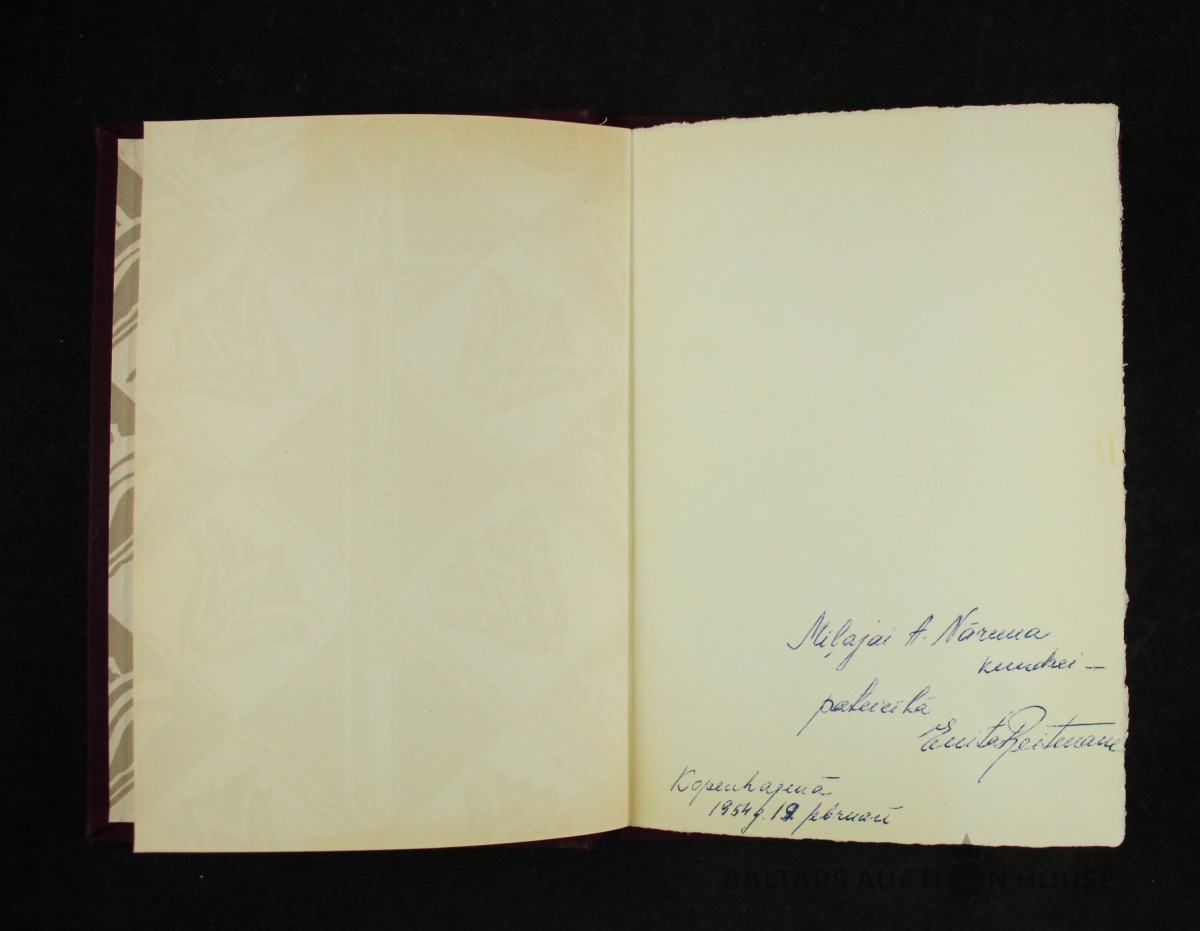 Miļajai A. Nāruna
kundzei –
pateicībā
Emita Reitmane
Kopenhagenā
1954 g. 19 februarī
BALTARS AUCTION HOUSE